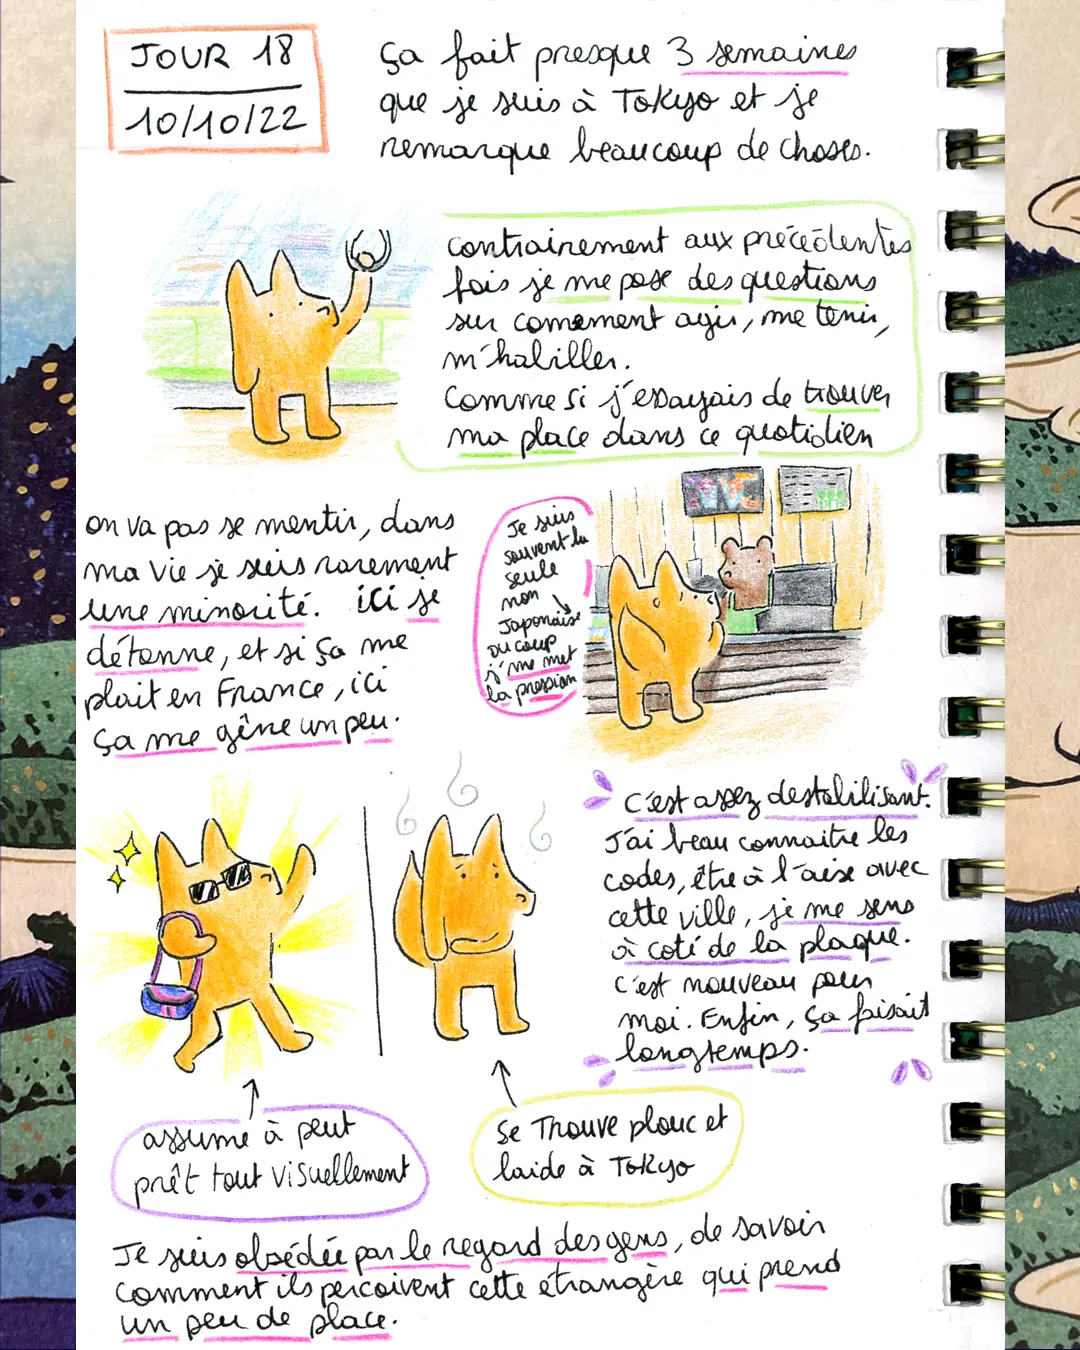 JOUR 18
10/10/22
ça fait presque 3 semaines
que je suis à Tokyo et je
remarque beaucoup de choses.
contrairement aux précédentes
fois je me pose des questions
sur comment agir, me tenir,
m'habiller.
Comme si j'essayais de trouver
ma place dans ce quotidien
on va pas se mentir, dans
ma vie je suis rarement
une minorité. ici je
détonne, et si ça me
plait en France, ici
ça me gêne un peu.
Je suis
souvent la
seule
non
Japonaise
du coup
j'me met
la pression
c'est assez destabilisant.
J'ai beau connaitre les
codes, être à l'aise avec
cette ville, je me sens
à coté de la plaque.
c'est nouveau pour
moi. Enfin, ça faisait
longtemps.
assume à peut
prêt tout visuellement
se Trouve plouc et
laide à Tokyo
Je suis obsédée par le regard des gens, de savoir
comment ils perçoivent cette étrangère qui prend
un peu de place.